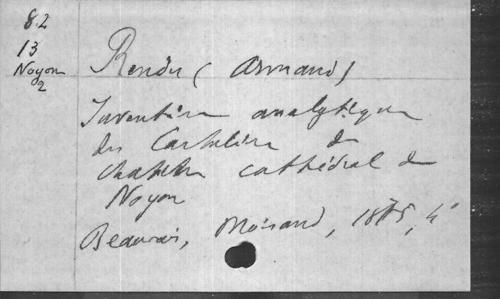 82
13
Noyon
2
Rendu (Armand)
Inventaire analytique
du Cartulaire du
chapitre cathédral de
Noyon
Beauvais, Moisand, 1875, 4°